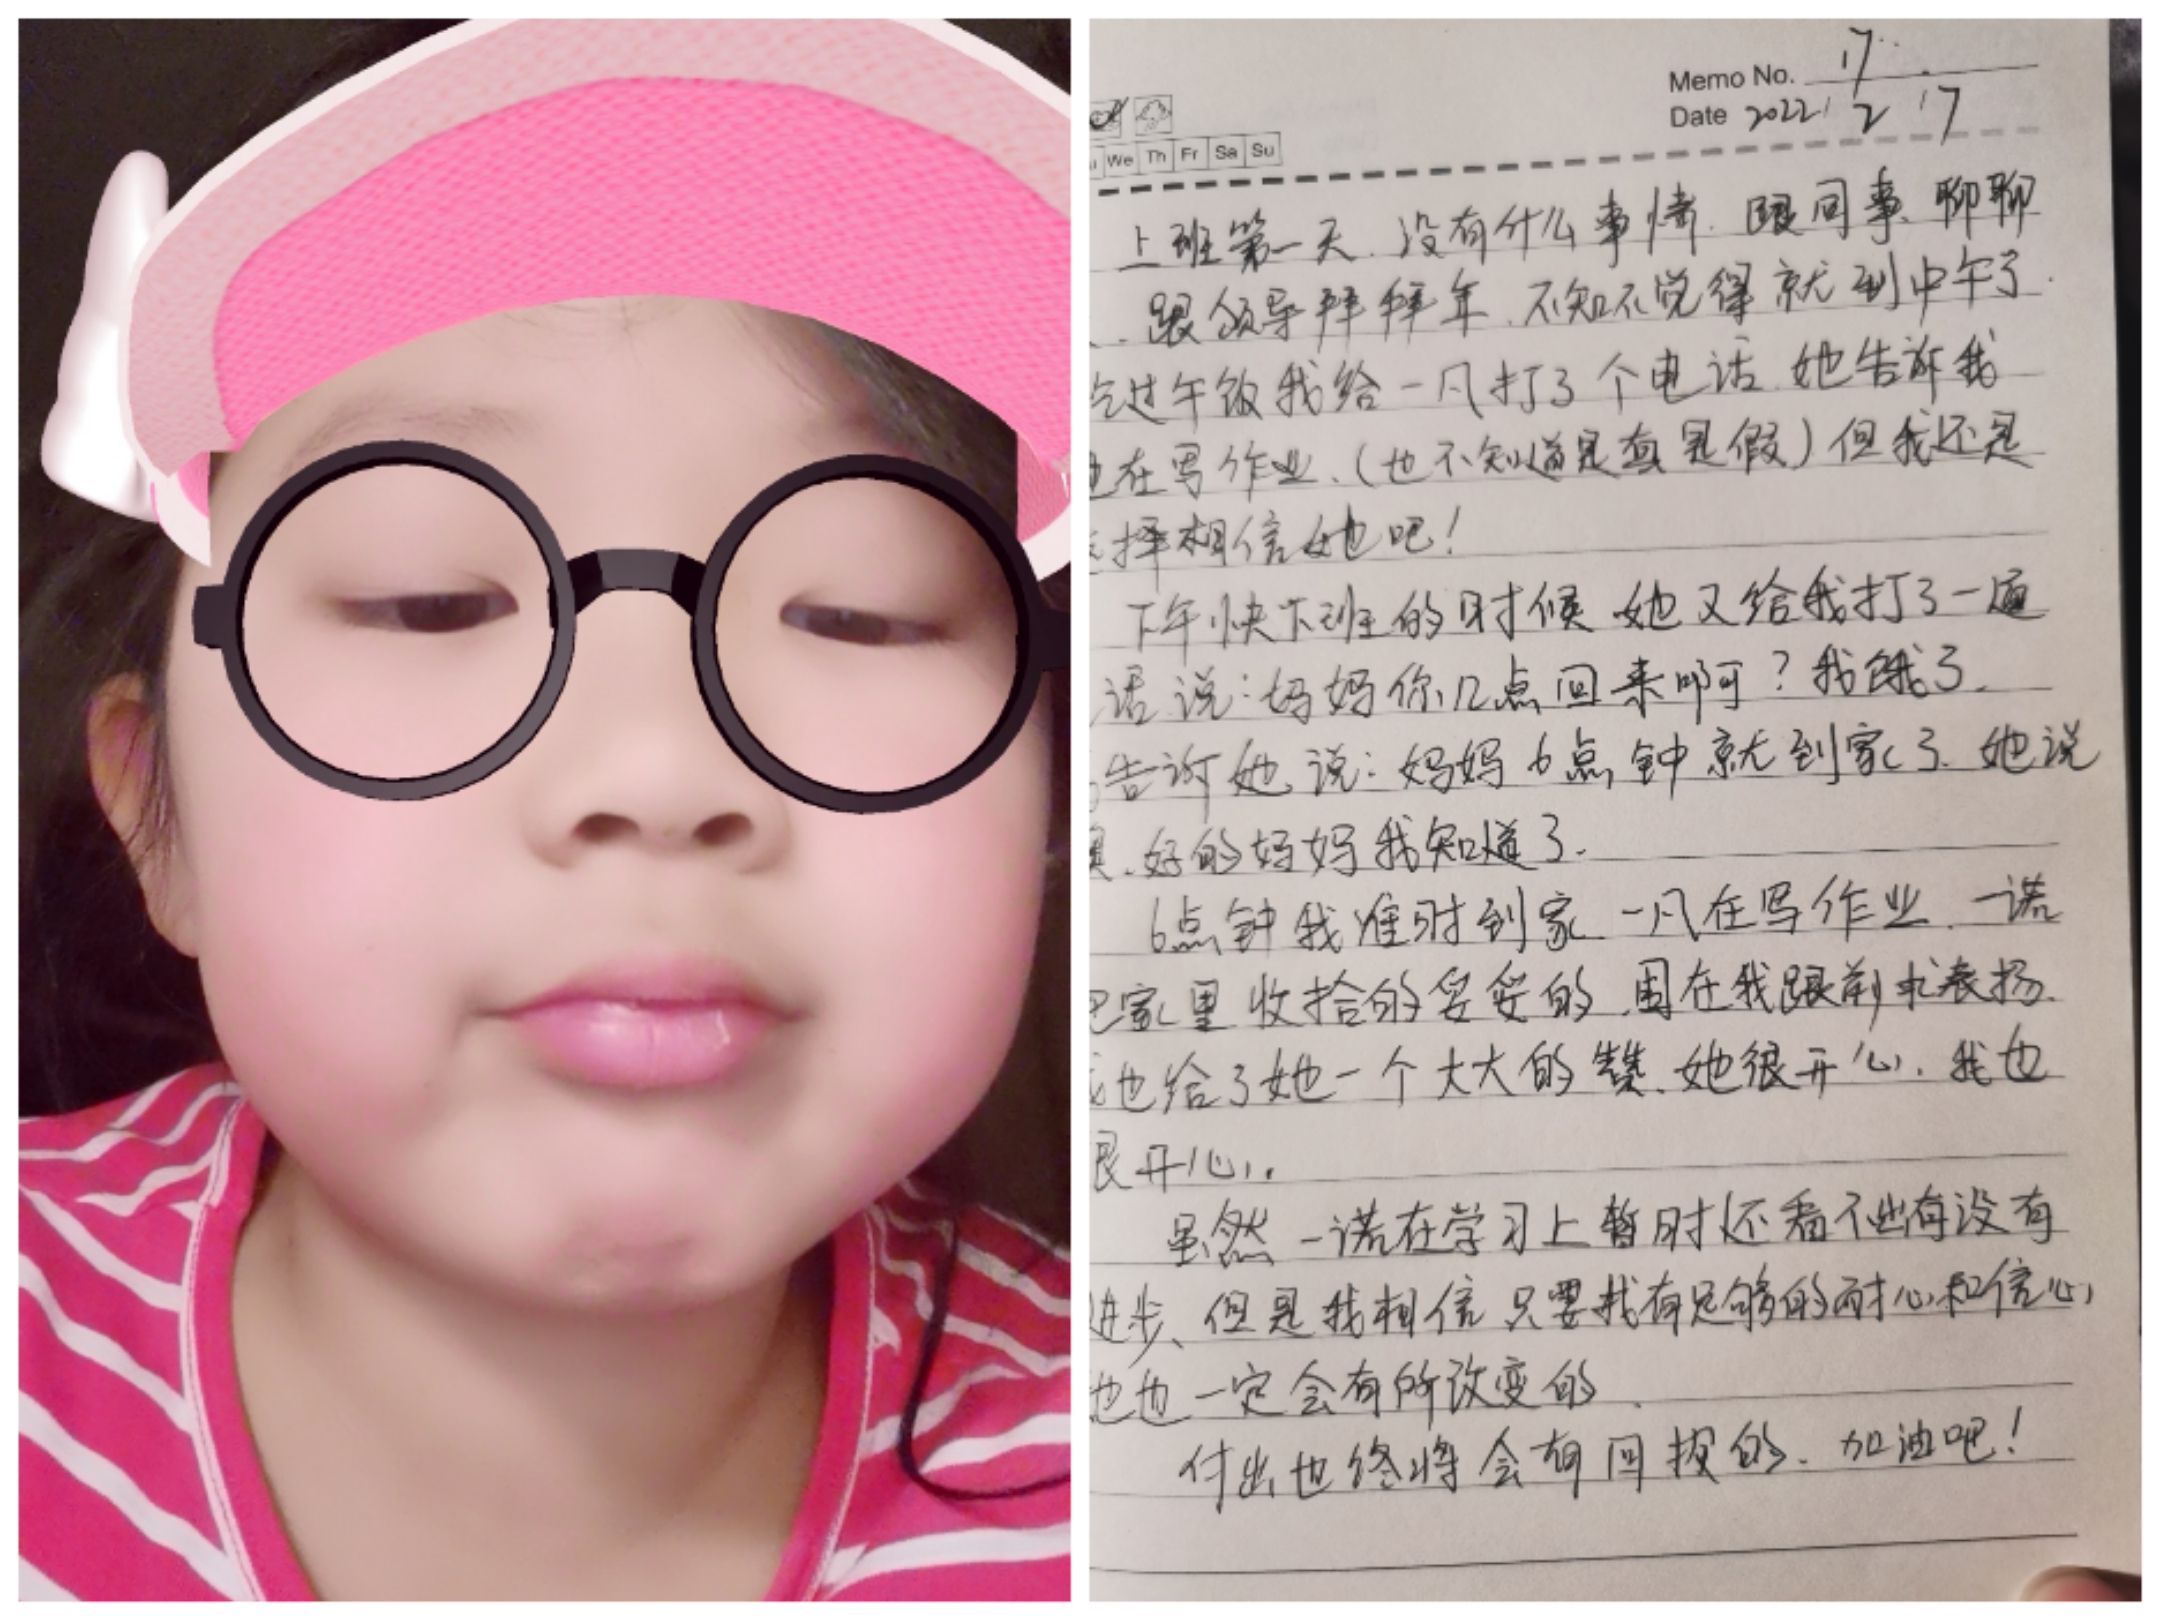 Memo No. 17
Date 2022 2 17
We Th Fr Sa Su
上班第一天.没有什么事情.跟同事聊聊
.跟领导拜拜年.不知不觉得就到中午了.
吃过午饭我给一凡打了个电话.她告诉我
她在写作业.(也不知道是真是假)但我还是
选择相信她吧!
下午快下班的时候她又给我打了一通
话说:妈妈你几点回来啊?我饿了.
告诉她说:妈妈6点钟就到家了.她说
噢.好的妈妈我知道了.
6点钟我准时到家.一凡在写作业.一诺
把家里收拾的妥妥的.围在我跟前求表扬.
我也给了她一个大大的赞.她很开心.我也
很开心.
虽然一诺在学习上暂时还看不出有没有
进步、但是我相信只要我有足够的耐心和信心
她也一定会有所改变的.
付出也终将会有回报的.加油吧!